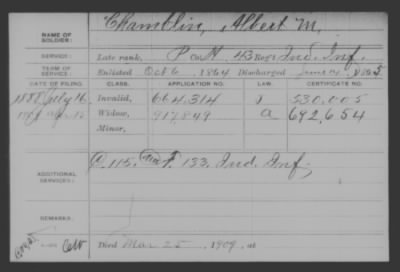 NAME OF SOLDIER: Chamblin, Albert M.
SERVICE: Late rank, P Co. H, 43 Reg't Ind. Inf.
TERM OF SERVICE: Enlisted Oct 6, 1864 Discharged June 14, 1865
DATE OF FILING. CLASS. APPLICATION NO. LAW. CERTIFICATE NO.
1888 July 16 Invalid, 664,314 530,005
Apr. Widow, 917,849 a 692,654
Minor,
ADDITIONAL SERVICES: 115, F. 133, Ind. Inf.
REMARKS:
Died Mar 25, 1909, at